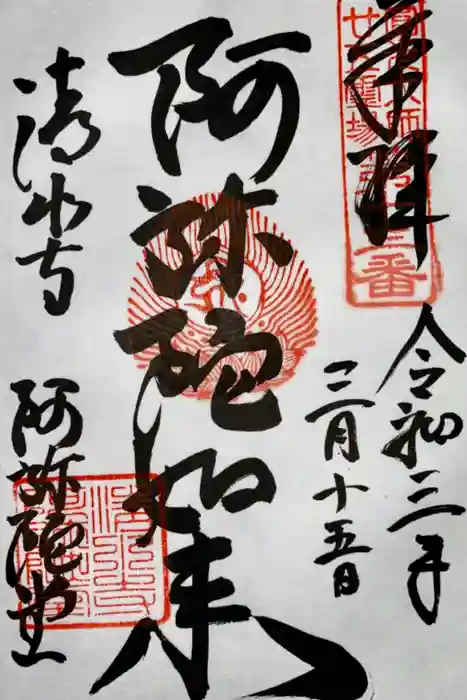 奉拝
令和三年
二月十五日
阿弥陀如来
清水寺
阿弥陀堂